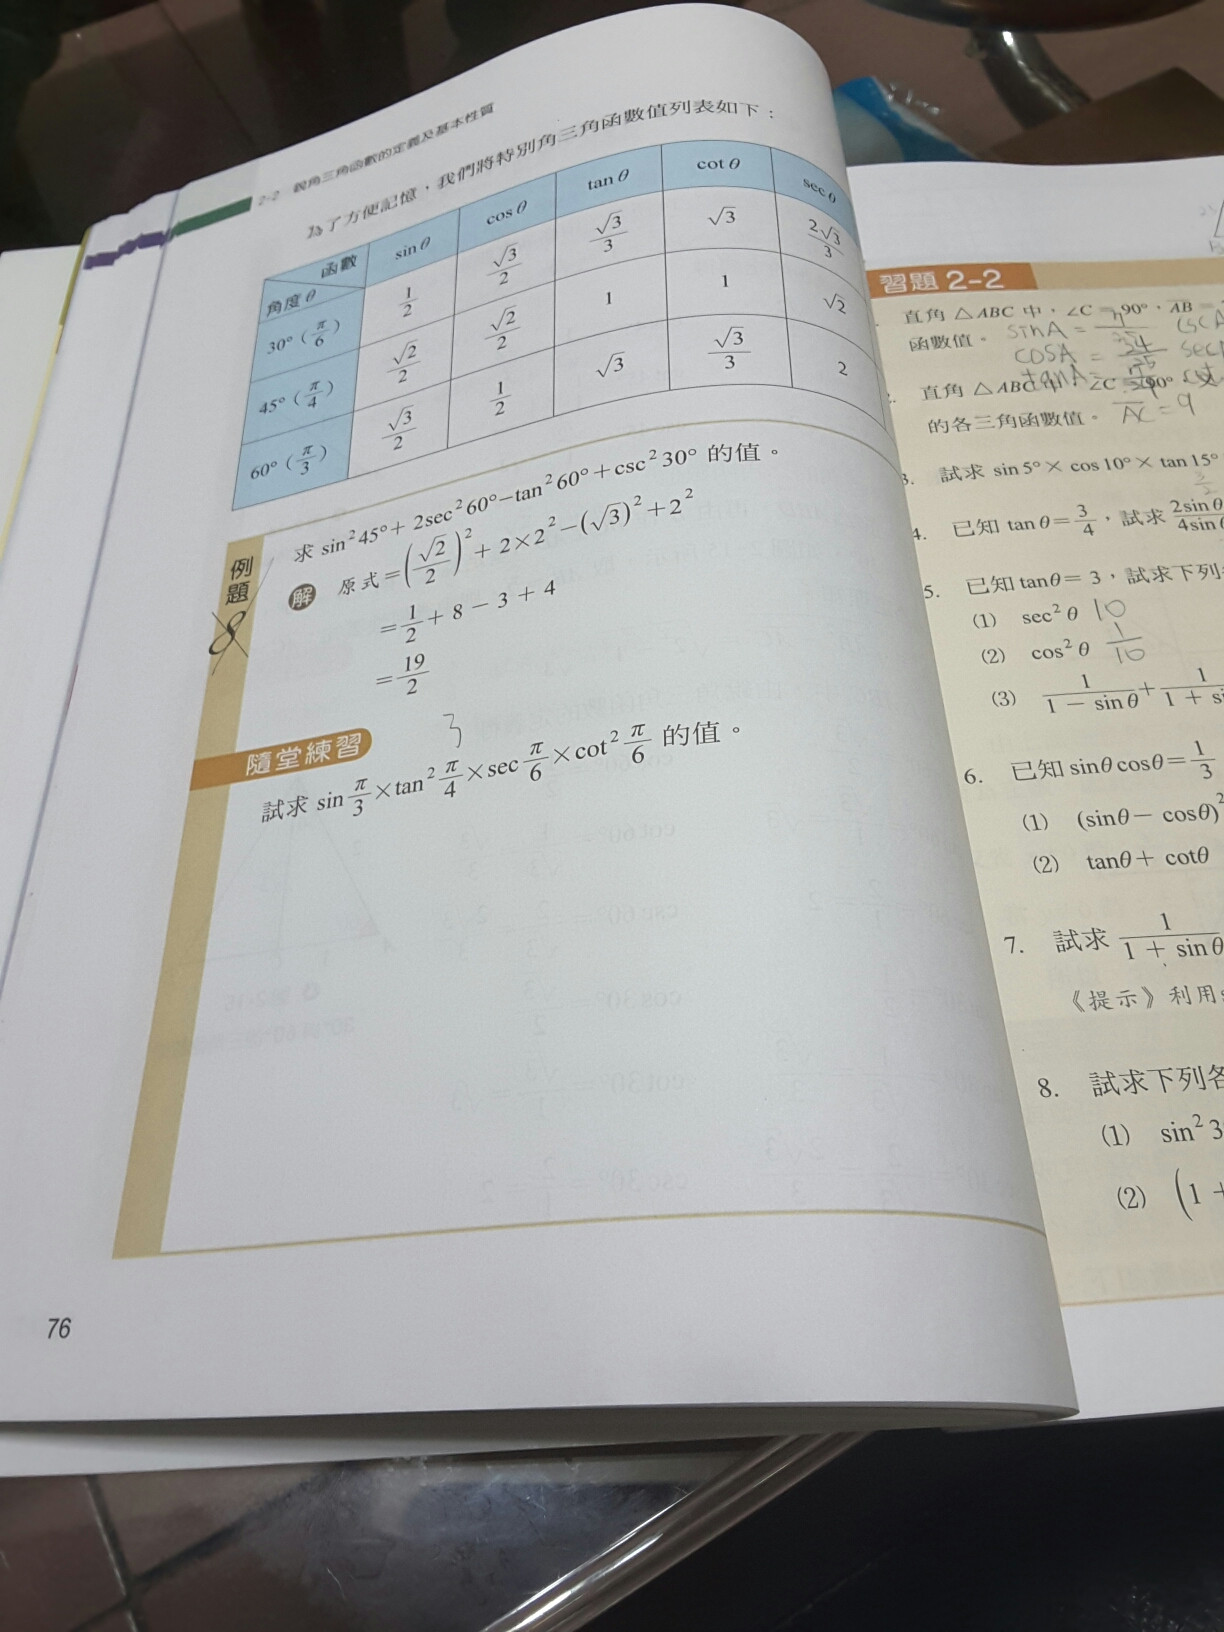 2-2 銳角三角函數的定義及基本性質
為了方便記憶，我們將特別角三角函數值列表如下：
函數 角度θ sinθ cosθ tanθ cotθ secθ
30°(π/6) 1/2 √3/2 √3/3 √3 2√3/3
45°(π/4) √2/2 √2/2 1 1 √2
60°(π/3) √3/2 1/2 √3 √3/3 2
例題 8
求 sin²45°+ 2sec²60°−tan²60°+csc²30° 的值。
解 原式=(√2/2)²+ 2×2²−(√3)²+2²
=1/2+8−3+4
=19/2
隨堂練習 3
試求 sin π/3×tan² π/4×sec π/6×cot² π/6 的值。
76
習題 2-2
直角△ABC 中，∠C = 90°，AB =
函數值。 sinA =
cosA = sec
tanA =
直角△ABC 中，∠C = 90°
的各三角函數值。 AC = 9
3. 試求 sin 5° × cos 10° × tan 15°
4. 已知 tanθ=3/4，試求 2sinθ/4sin
5. 已知 tanθ= 3，試求下列
(1) sec²θ 10
(2) cos²θ 1/10
(3) 1/(1 − sinθ)+1/(1 +
6. 已知 sinθcosθ=1/3
(1) (sinθ− cosθ)²
(2) tanθ+ cotθ
7. 試求 1/(1 + sinθ
《提示》利用
8. 試求下列各
(1) sin² 3
(2) (1 +